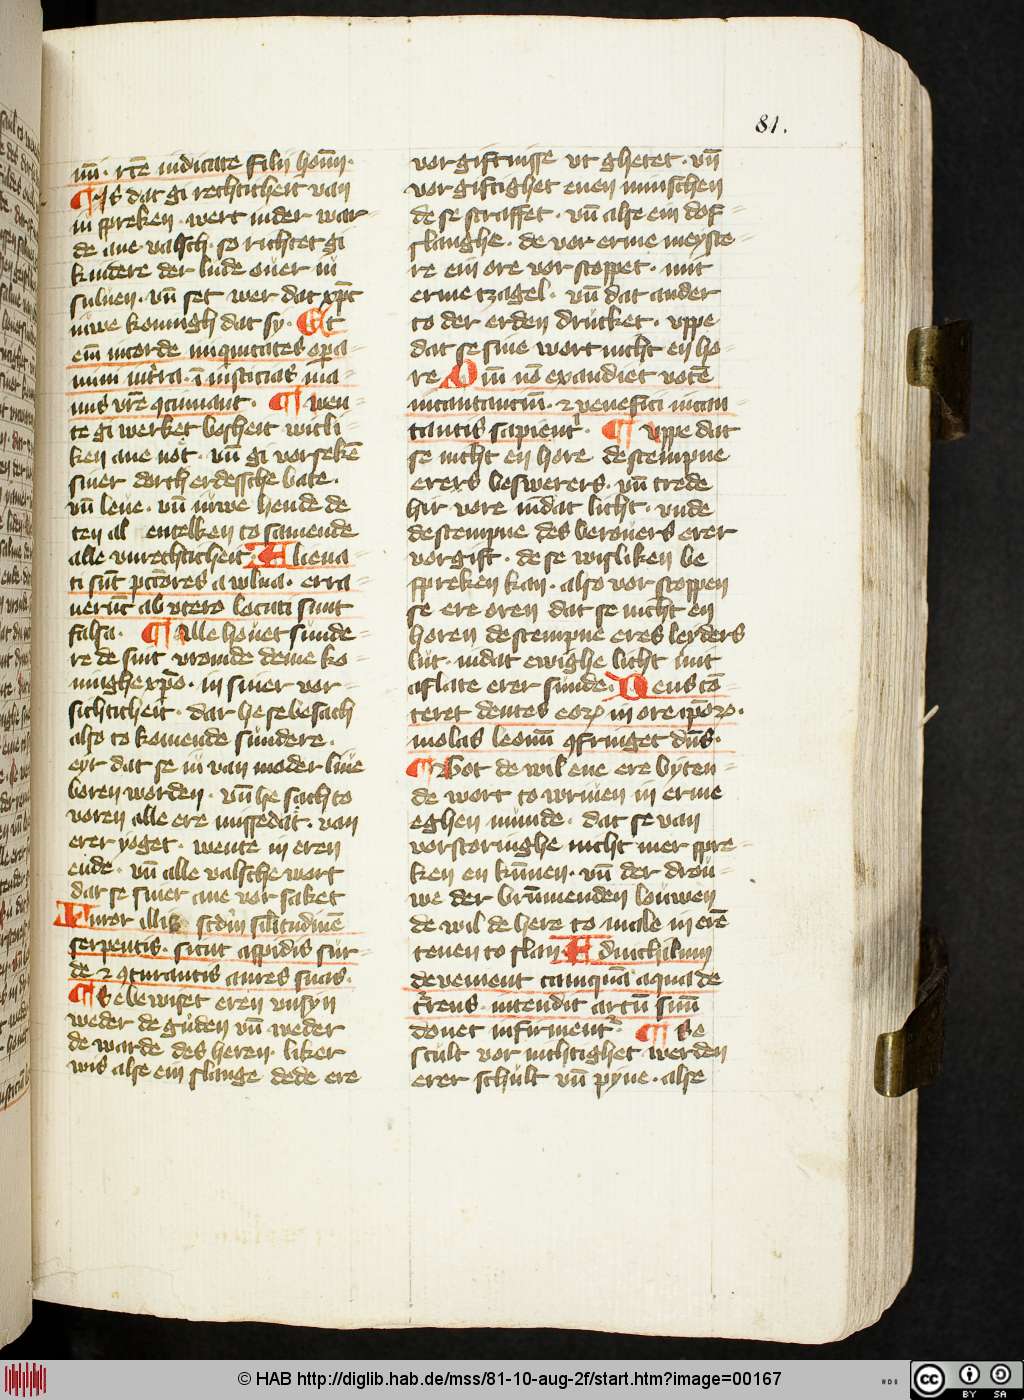 81.
mini · rcte iudicate filij homi̅ ·
¶ Is dat gi rechticheit van
iu spreken · wert in der war=
de ane valsch · so richtet gi
kindere der lude ouer iu
suluen · vn̄ set wer dat xp̄c
iuwe koningh dat sy · Et
em̄ in corde iniquitates opera=
mini in t̄ra · i̅ iusticias ma=
nus vr̄e ꝯcinnant · ¶ wen=
te gi werket bosheit willi=
ken ane not · vn̄ gi vorseken̄
siner dorch erdessche bate ·
vn̄ leue · vn̄ iuwe hende de
ten al entelken to samende
alle vnrechticheit · Aliena=
ti su̅t pctores a wlua · erra=
ueru̅t ab vtero locuti sunt
falsa · ¶ Alle houet sunde=
re de sint vromde deme ko=
ninghe xpo · in siner vor=
sichticheit · dar he se besach
also to komende sundere ·
eyr dat se iu van moder liue
boren worden · vn̄ he sach to
voren alle ere missedat · van
erer yoget · wente in eren
ende · vn̄ alle valsche wort
dar se siner ane vorsaket
Furor illis scd̄m sil̄itudine̅
serpentis · sicut aspidis sur=
de ⁊ ꝯturantis aures suas ·
¶ Se bewiset eren vnsyn
weder de guden vn̄ weder
de warde des heren · liker
wis alse ein slange dede ere
vorgiftnisse vt ghetet · vn̄
vorgiftighet enen minschen
de se straffet · vn̄ alse ein dof=
slanghe · de vor erme meyste=
re ein ore vor stoppet · mit
erme tzagel · vn̄ dat ander
to der erden drucket · vppe
dat se sine wort nicht en ho=
re Que̅ no̅ exaudiet voce̅
incantantiu̅ · ⁊ venefici incan=
tantis sapient̓ · ¶ vppe dat
se nicht en hore de stempne
erers beswerers · vn̄ trede
hir vore in dat licht · vnde
de stempne des berouers erer
vorgift · de se wisliken be
spreken kan · also vor stoppen
se ere oren dat se nicht en
horen de stempne eres leyders
lut · in dat ewighe licht mit
aflate erer sunde · Deus co̅=
teret dentes eoꝝ in ore ip̅oꝝ ·
molas leonu̅ ꝯfringet dn̄s ·
¶ Got de wil ene ere byten=
de wort to wriuen in erme
eghen munde · dat se van
vorstoringhe nicht mer spre=
ken en kunnen · vn̄ der drou=
we der bru̅menden louwen
de wil de here to male in ere̅
tenen to slan Ad nichilum
deuenient tanqua̅ aqua de
cr̄ens · intendit arcu̅ suu̅
donec infirment̓ ¶ Se
scult vor nichtighet werden
erer schult vn̄ pyne · alse
© HAB http://diglib.hab.de/mss/81-10-aug-2f/start.htm?image=00167